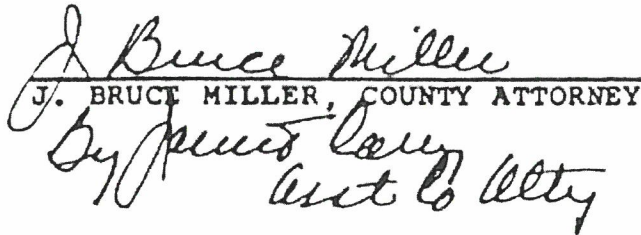 J Bruce Miller
J. BRUCE MILLER, COUNTY ATTORNEY
By
Asst Co Atty